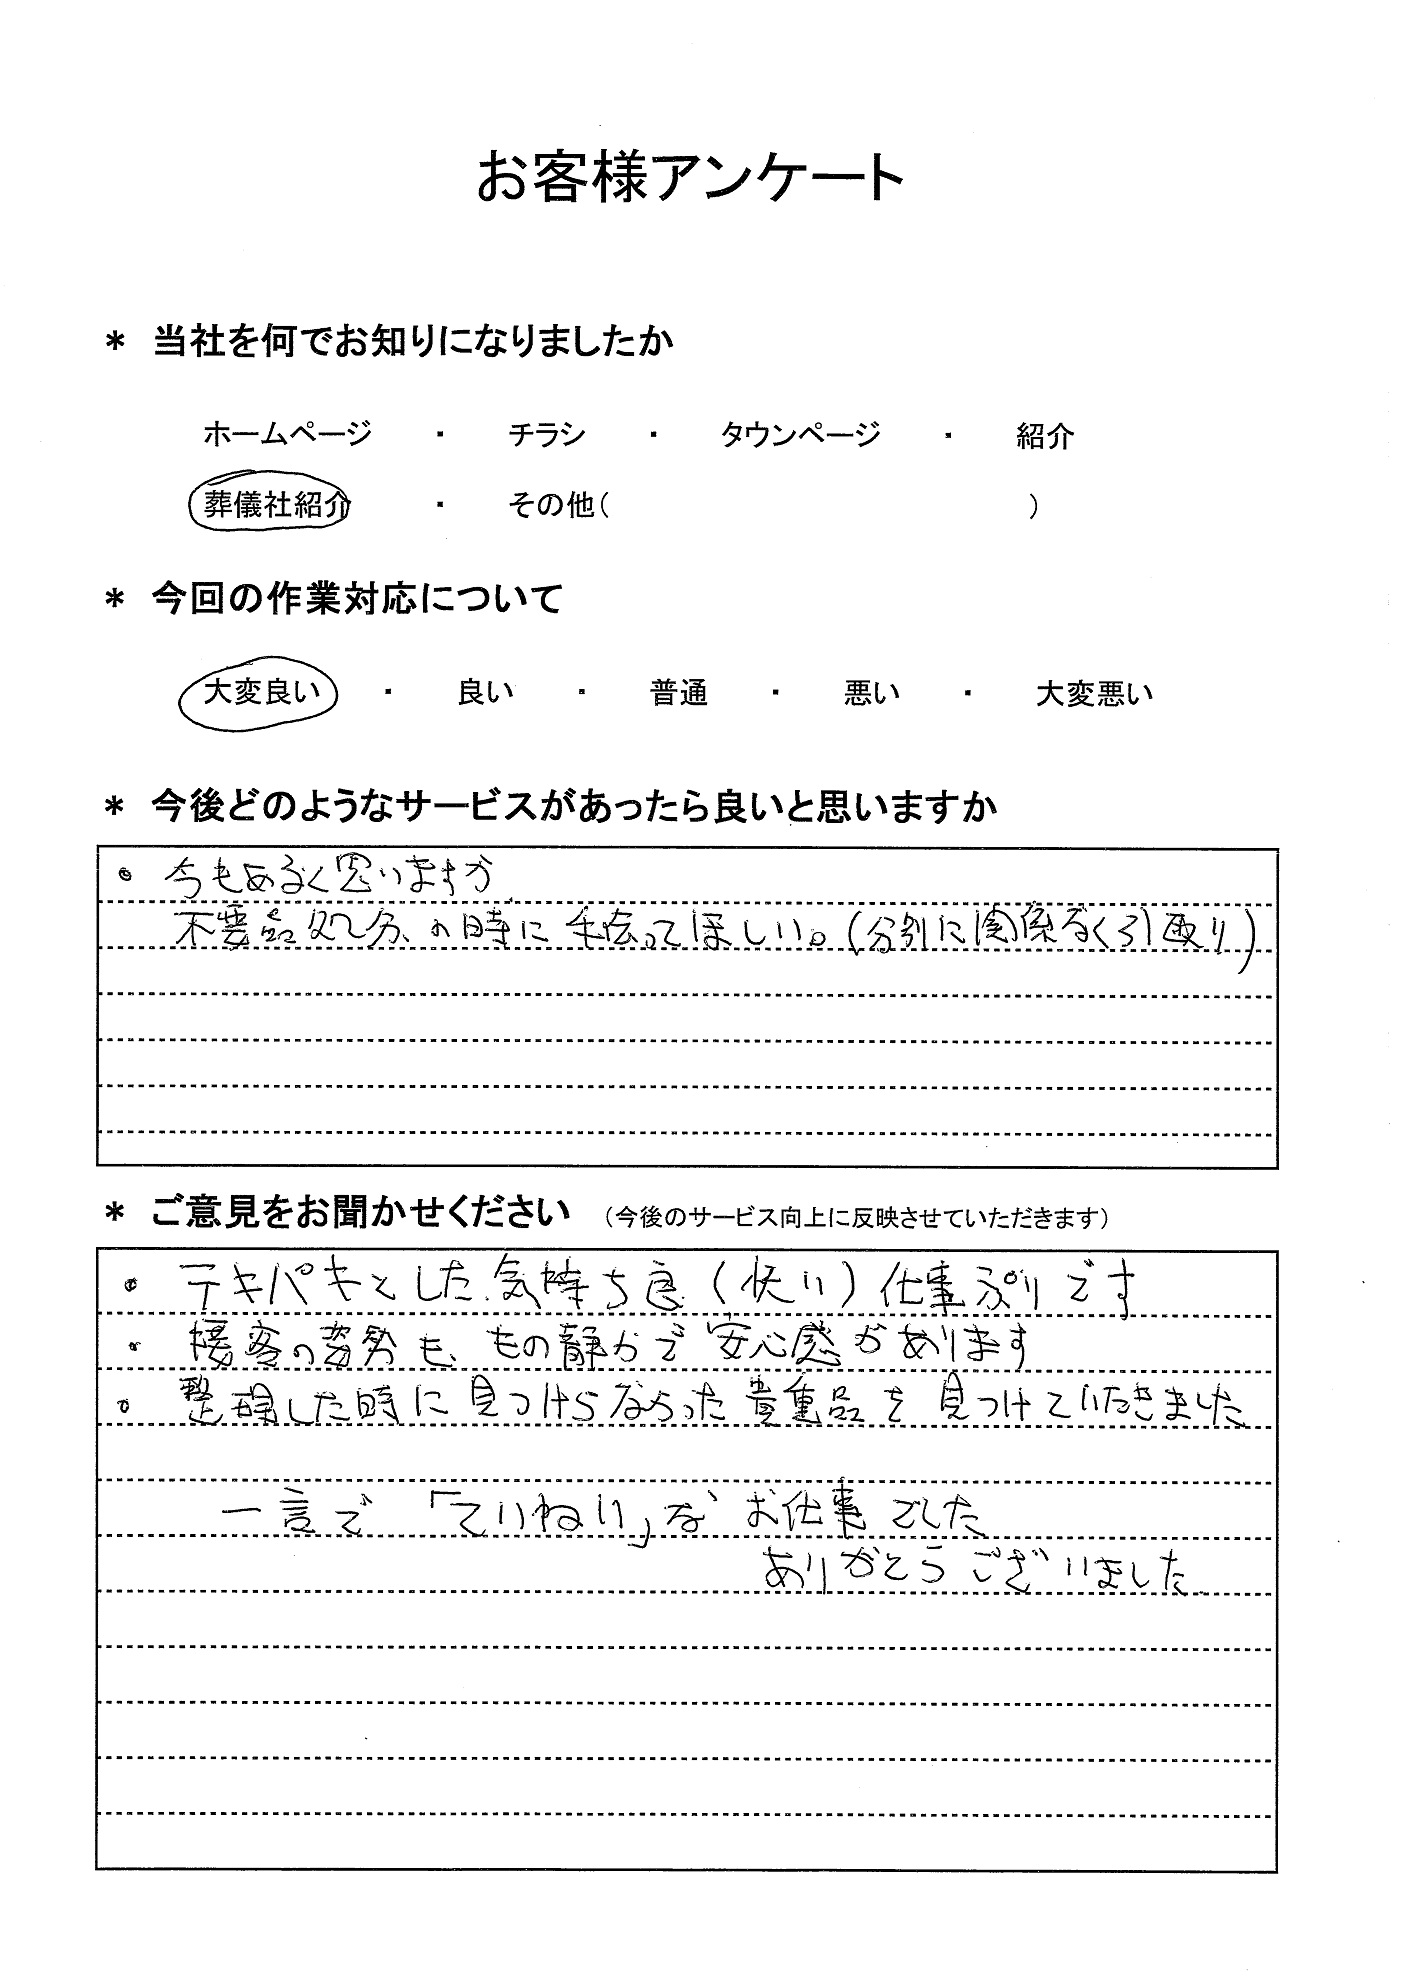 お客様アンケート
* 当社を何でお知りになりましたか
ホームページ ・ チラシ ・ タウンページ ・ 紹介
葬儀社紹介 ・ その他( )
* 今回の作業対応について
大変良い ・ 良い ・ 普通 ・ 悪い ・ 大変悪い
* 今後どのようなサービスがあったら良いと思いますか
• 今もあるく思いますが
不要品処分、の時に手伝ってほしい。(分別に関係なく引取り)
* ご意見をお聞かせください (今後のサービス向上に反映させていただきます)
• テキパキとした気持ち良(快い)仕事ぶりです
• 接客の姿勢も、もの静かで安心感があります
• 整理した時に見つけらならった貴重品を見つけていたきました
一言で「ていねい」なお仕事でした
ありがとうございました